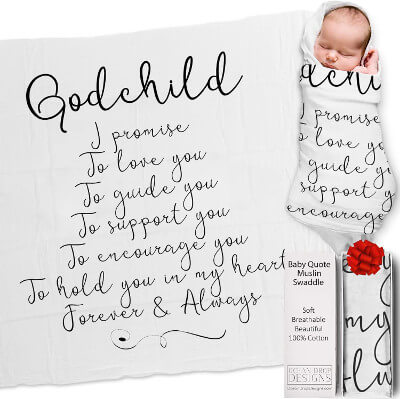 Godchild
I promise
To love you
To guide you
To support you
To encourage you
To hold you in my heart
Forever & Always
odchi
I promise
To love you
To guide you
o support y
encourage
Baby Quote
Muslin
Swaddle
Soft
Breathable
Beautiful
100% Cotton
OCEAN DROP
DESIGNS
my